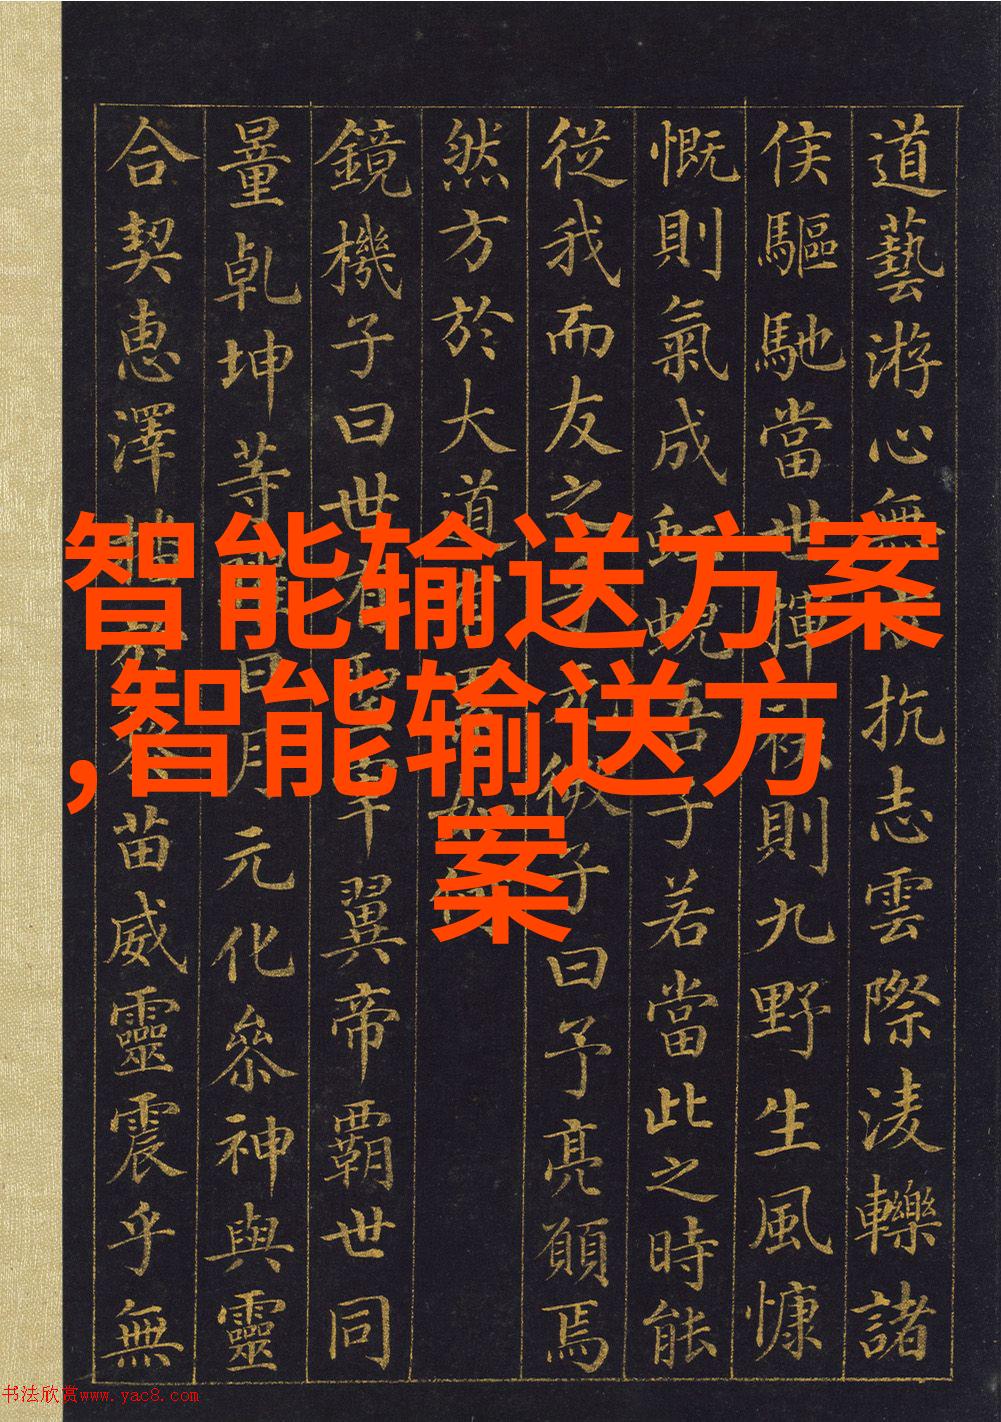 道藝游心無抗志雲際淩轢諸
侯驅馳當世揮袂則九野生風慷
慨則氣成虹蜺吾子若當此之時能
從我而友之乎玄微子曰予亮願焉
然方於大道有如何
鏡機子曰世有宰翼帝霸世同
量乾坤等曜日月元化參神與靈
合契惠澤播黎苗威靈震乎無
智能输送方案
,智能输送方
案
书法欣赏www.yac8.com